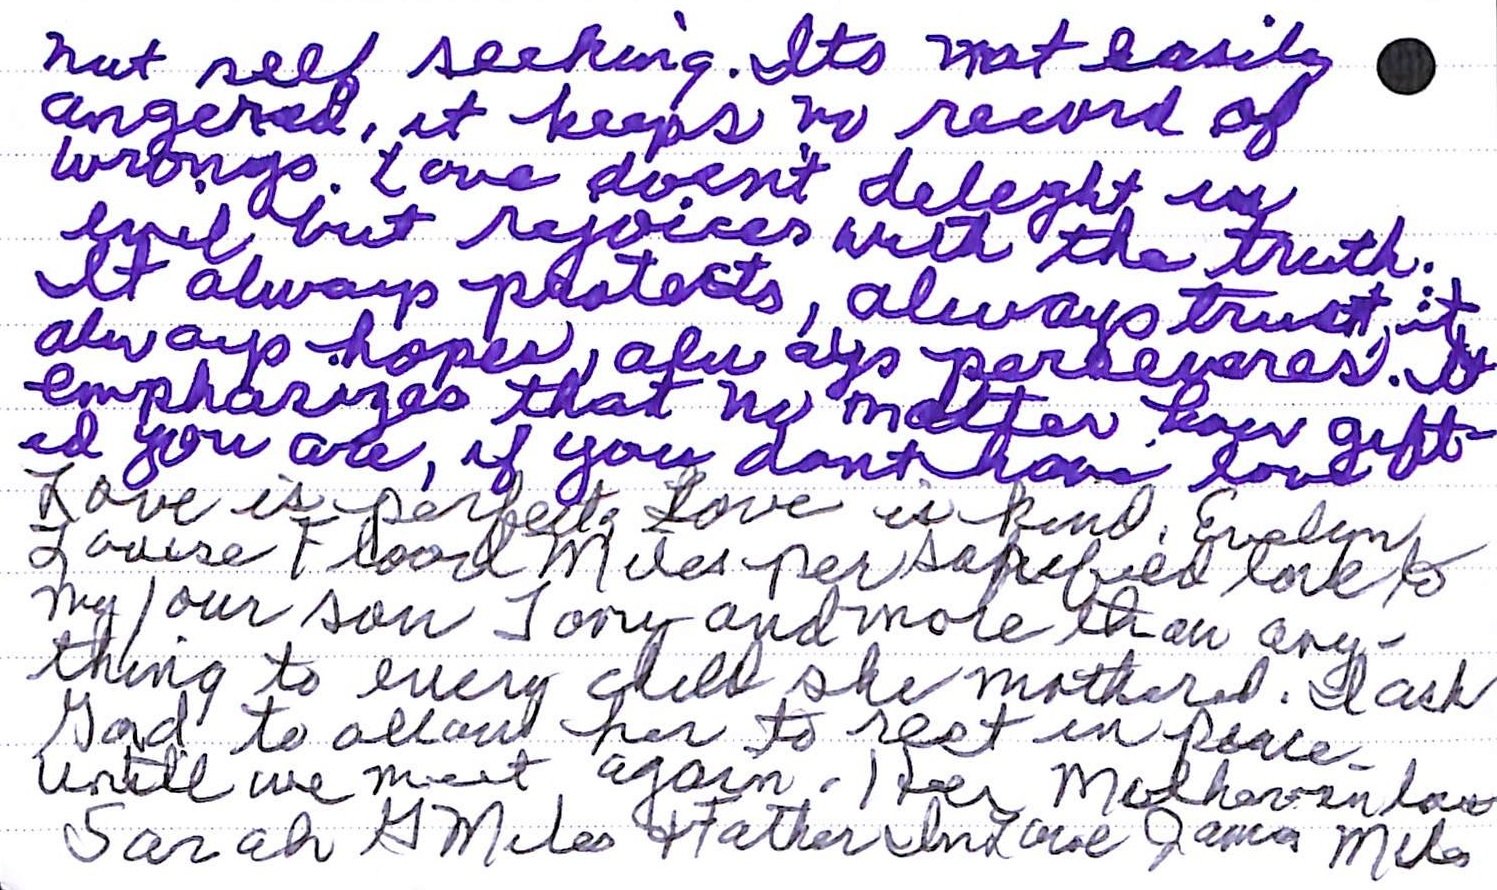 not self seeking. Its not easily
angered, it keeps no record of
wrongs. Love doesn't deleght in
evel but rejoices with the truth.
It always protects, always trust, it
always hopes, always perseveres. It
emphasizes that no matter how gift-
ed you are, if you dont have love
Love is perfect, Love is kind. Evelyn
Louise Flood Miles per love to
my/our son Tony and more than any-
thing to every child she mothered. I ask
God to allow her to rest in peace
until we meet again. Her Mother in law
Sarah G Miles & Father In Love James Miles